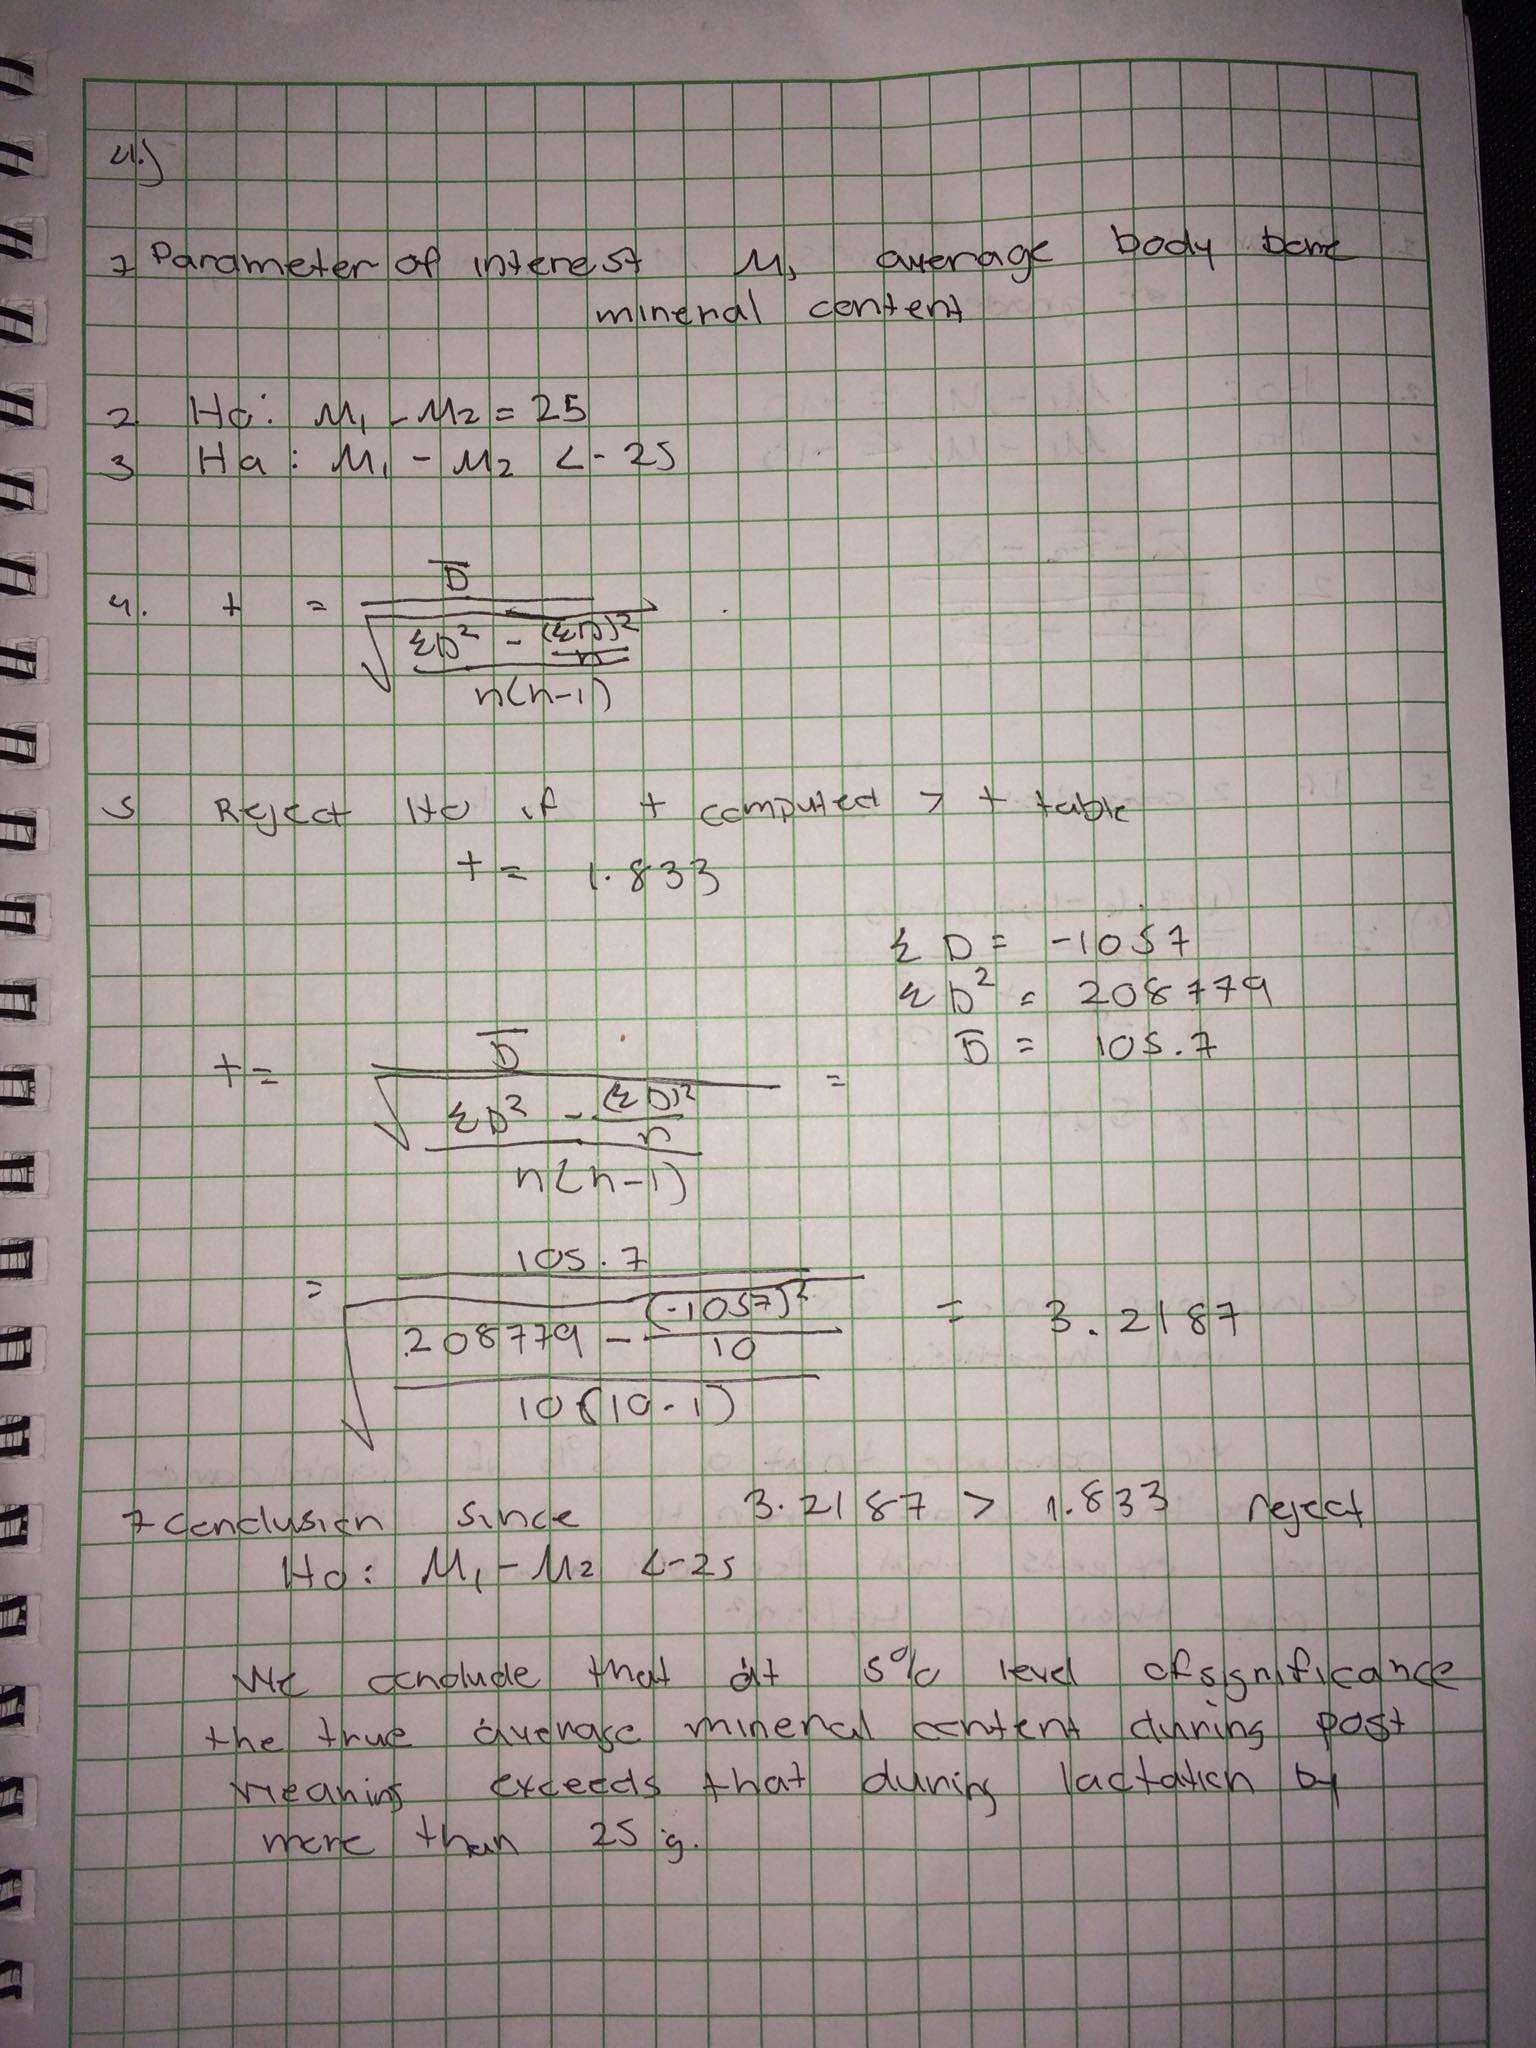 4.)
1 Parameter of interest M, average body bone
mineral content
2 Ho: M₁ - M₂ = 25
3 Ha: M₁ - M₂ < - 25
4. t = D̅ / √((ΣD² - (ΣD)²/n) / n(n-1))
5 Reject Ho if t computed > t table
t = 1.833
ΣD = -1057
ΣD² = 208779
D̅ = 105.7
t = D̅ / √((ΣD² - (ΣD)²/n) / n(n-1)) =
= 105.7 / √((208779 - (-1057)²/10) / 10(10-1)) = 3.2187
7 Conclusion since 3.2187 > 1.833 reject
Ho: M₁ - M₂ < -25
We conclude that at 5% level of significance
the true average mineral content during post
weaning exceeds that during lactation by
more than 25 g.